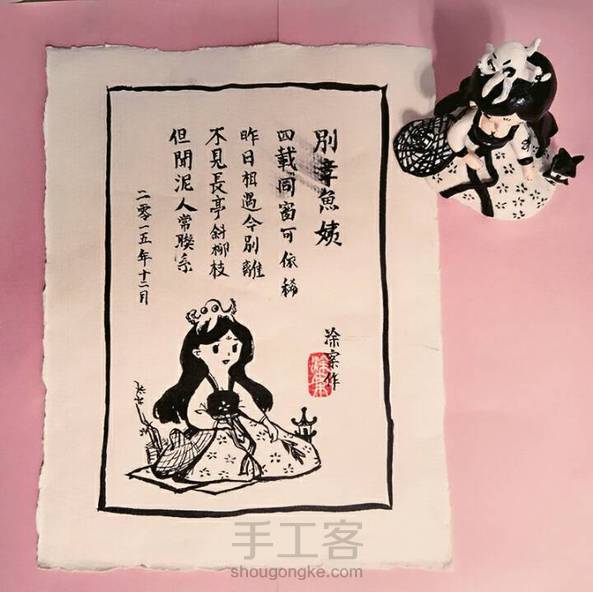 別章魚姨
四載同窗可依稀
昨日相遇今別離
不見長亭斜柳枝
但聞泥人常聯系
二零一五年十二月
涂案作
手工客
shougongke.com